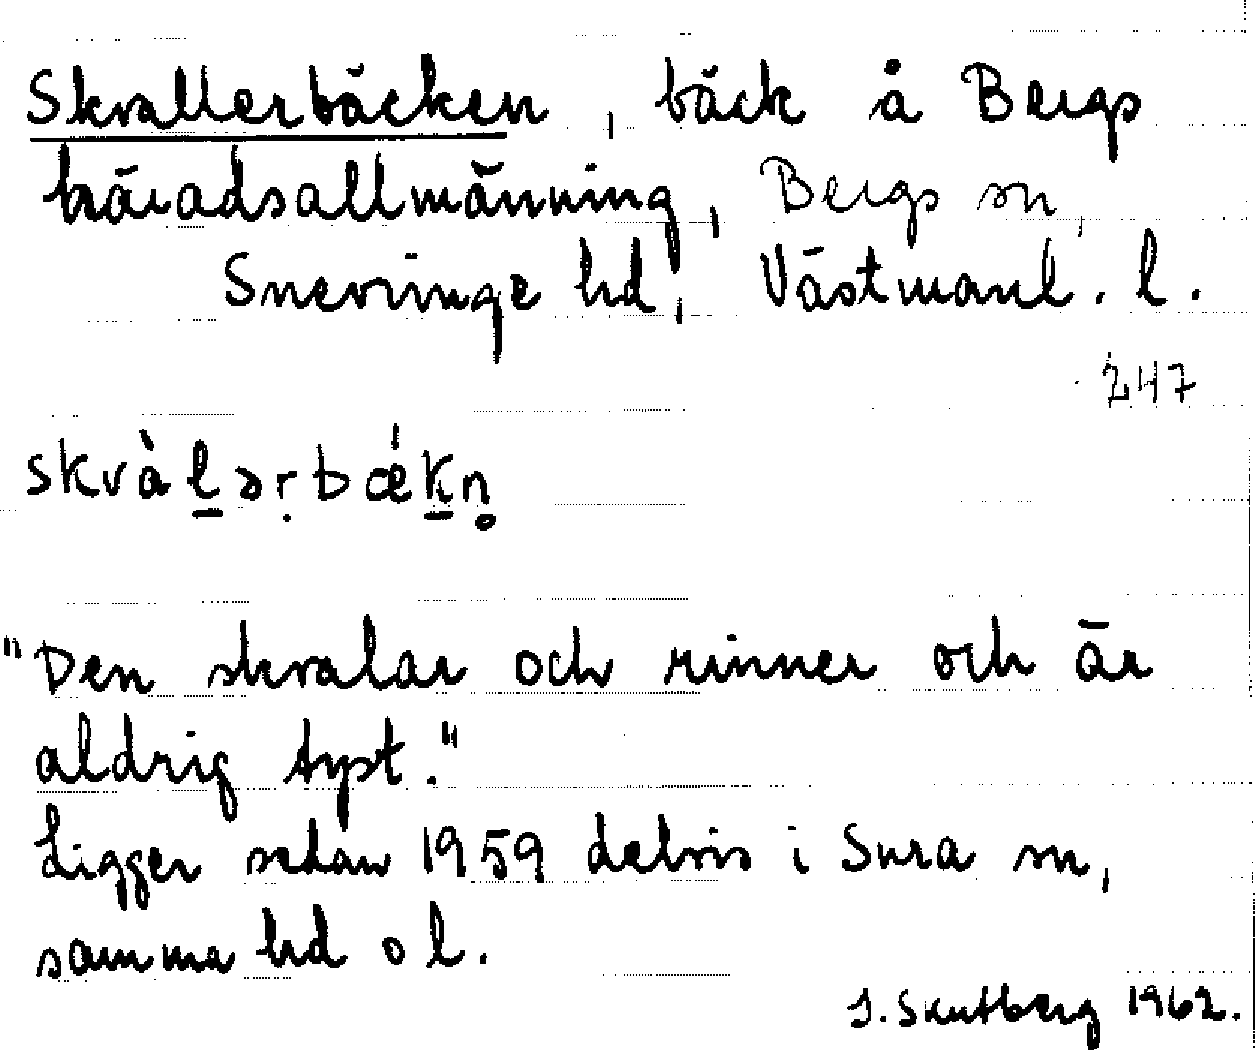 Skvallerbäcken, bäck å Bergs
häradsallmänning, Bergs sn,
Snevringe hd, Västmanl. l.
247
skvàlərbǽkn̥
"Den skvalar och rinner och är
aldrig tyst."
Ligger sedan 1959 delvis i Sura sn,
samma hd o l.
J. Skutberg 1962.